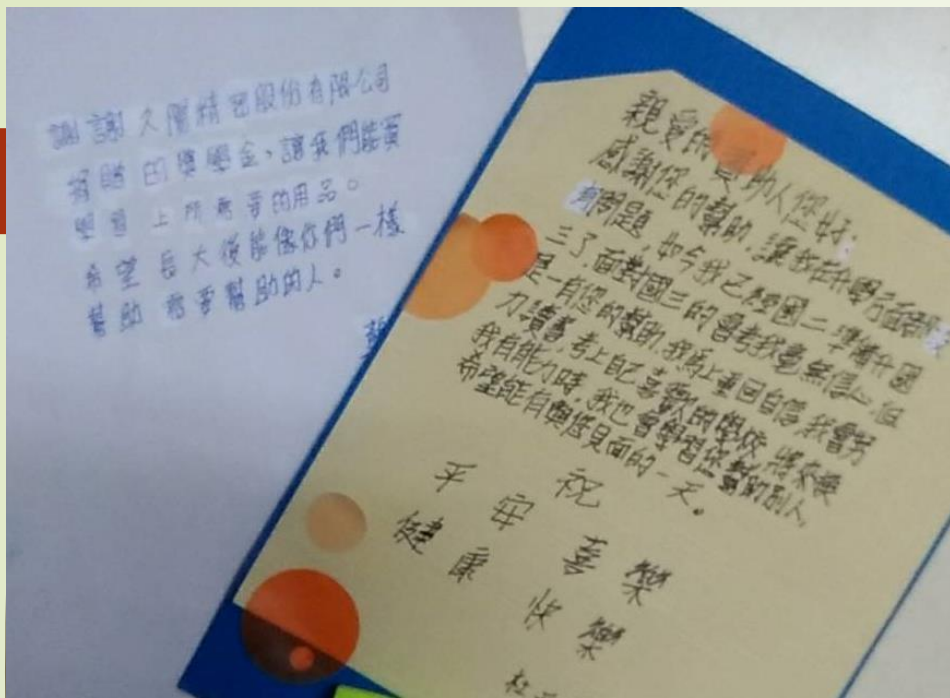 謝謝久陽精密股份有限公司
捐贈的獎學金、讓我們能買
學習上所需要的用品。
希望長大後能像你們一樣
幫助需要幫助的人。
親愛的資助人您好:
感謝您的幫助,讓我在升學方面沒
有問題,如今我已經國二準備升國
三了,面對國三的會考我毫無信心但
是一有您的幫助,我馬上重回自信,我會努
力讀書,考上自己喜歡的學校,將來換
我有能力時,我也會學習您幫助別人,
希望能有與您見面的一天。
祝
平安 喜樂
健康 快樂